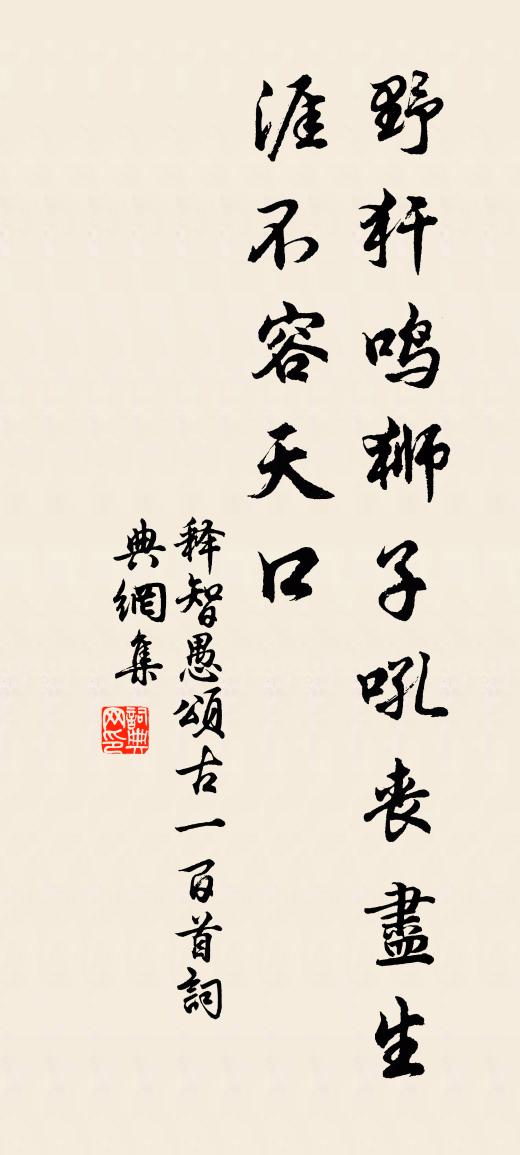 野犴鸣狮子吼丧盡生
涯不容天口
释智愚頌古一百首詞
典網集
詞典
网印